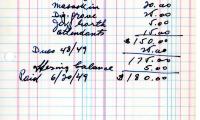 20.00
Dr. grove 25.00
5.00
attendants 15.00
$150.00
Dues 48/49 25.00
175.00
offering balance 5.00
Paid 6/20/49 $180.00